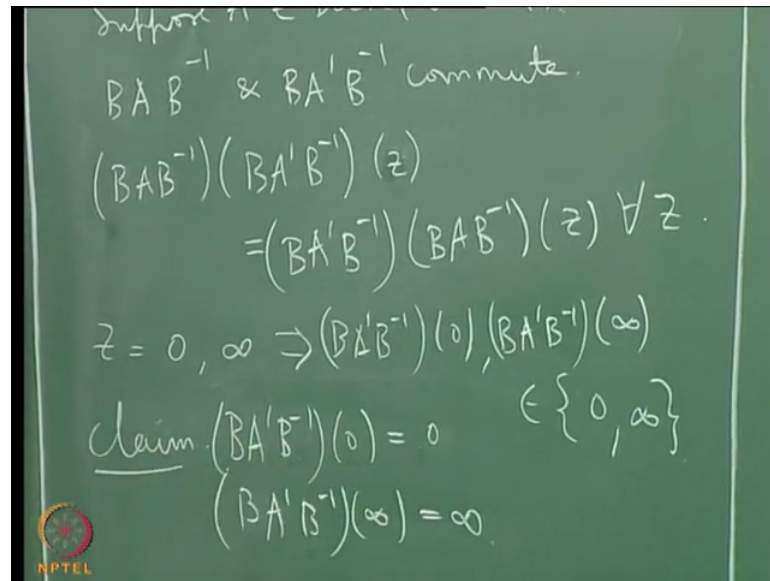 Suppose A
BAB⁻¹ & BA'B⁻¹ commute.
(BAB⁻¹)(BA'B⁻¹)(z)
=(BA'B⁻¹)(BAB⁻¹)(z) ∀ z.
z = 0, ∞ ⇒ (BA'B⁻¹)(0), (BA'B⁻¹)(∞)
∈ {0, ∞}
Claim. (BA'B⁻¹)(0) = 0
(BA'B⁻¹)(∞) = ∞.
NPTEL